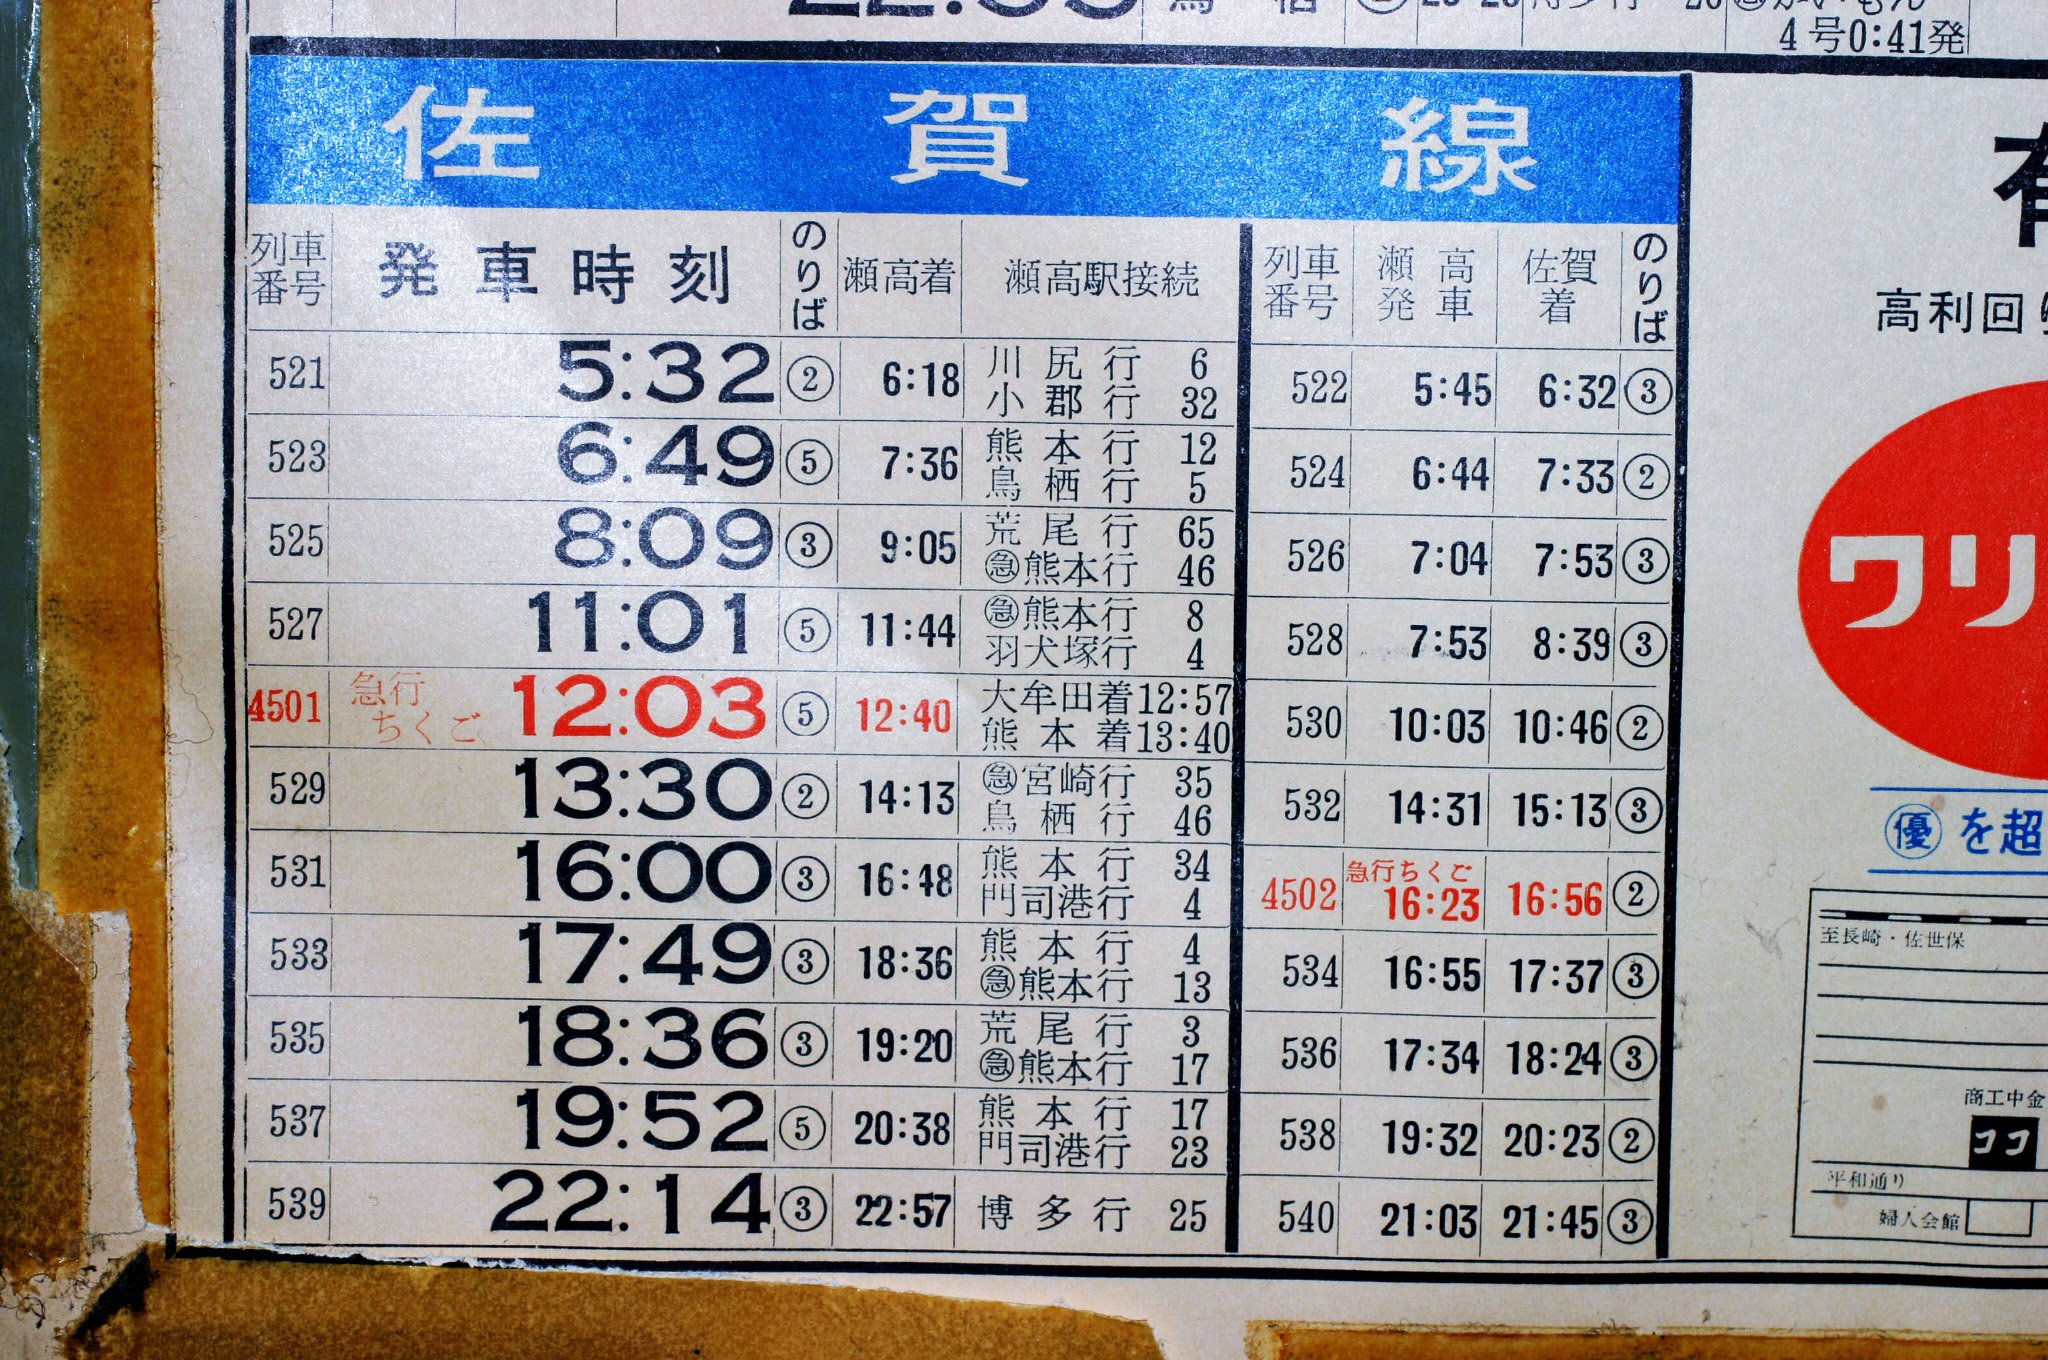 4号0:41発
佐賀線
列車番号 発車時刻 のりば 瀬高着 瀬高駅接続 列車番号 瀬高発車 佐賀着 のりば
521 5:32 ② 6:18 川尻行 6 小郡行 32 522 5:45 6:32 ③
523 6:49 ⑤ 7:36 熊本行 12 鳥栖行 5 524 6:44 7:33 ②
525 8:09 ③ 9:05 荒尾行 65 ㊝熊本行 46 526 7:04 7:53 ③
527 11:01 ⑤ 11:44 急熊本行 8 羽犬塚行 4 528 7:53 8:39 ③
4501 急行ちくご 12:03 ⑤ 12:40 大牟田着12:57 熊本着13:40 530 10:03 10:46 ②
529 13:30 ② 14:13 急宮崎行 35 鳥栖行 46 532 14:31 15:13 ③
531 16:00 ③ 16:48 熊本行 34 門司港行 4 4502 急行ちくご 16:23 16:56 ②
533 17:49 ③ 18:36 熊本行 4 急熊本行 13 534 16:55 17:37 ③
535 18:36 ③ 19:20 荒尾行 3 急熊本行 17 536 17:34 18:24 ③
537 19:52 ⑤ 20:38 熊本行 17 門司港行 23 538 19:32 20:23 ②
539 22:14 ③ 22:57 博多行 25 540 21:03 21:45 ③
高利回り
ワリ
㊝を超
至長崎・佐世保
商工中金
ココ
平和通り
婦人会館